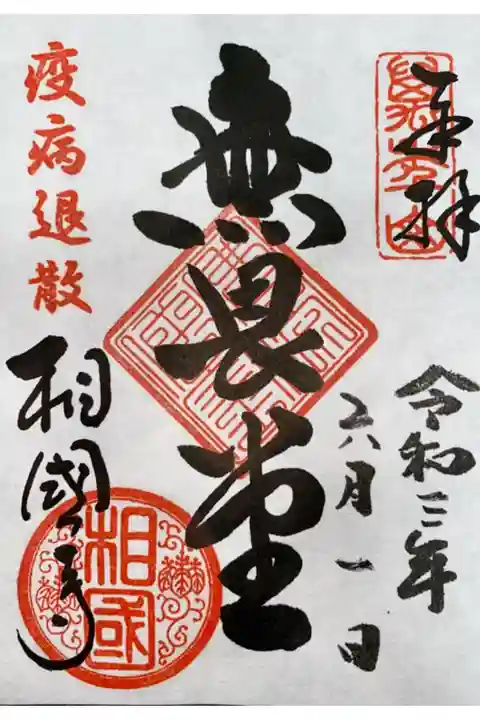 奉拝
令和三年
六月一日
無畏堂
疫病退散
相國寺
相国